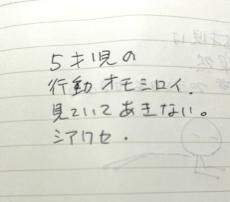 5才児の
行動 オモシロイ.
見ていてあきない。
シアワセ.